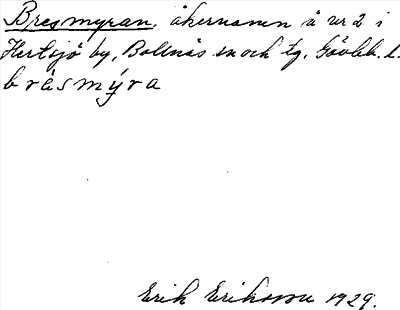 Bresmyran, åkernamn å nr 2 i
Hertsjö by, Bollnäs sn och tg, Gävleb. l.
bræsmýra
Erik Eriksson 1929.